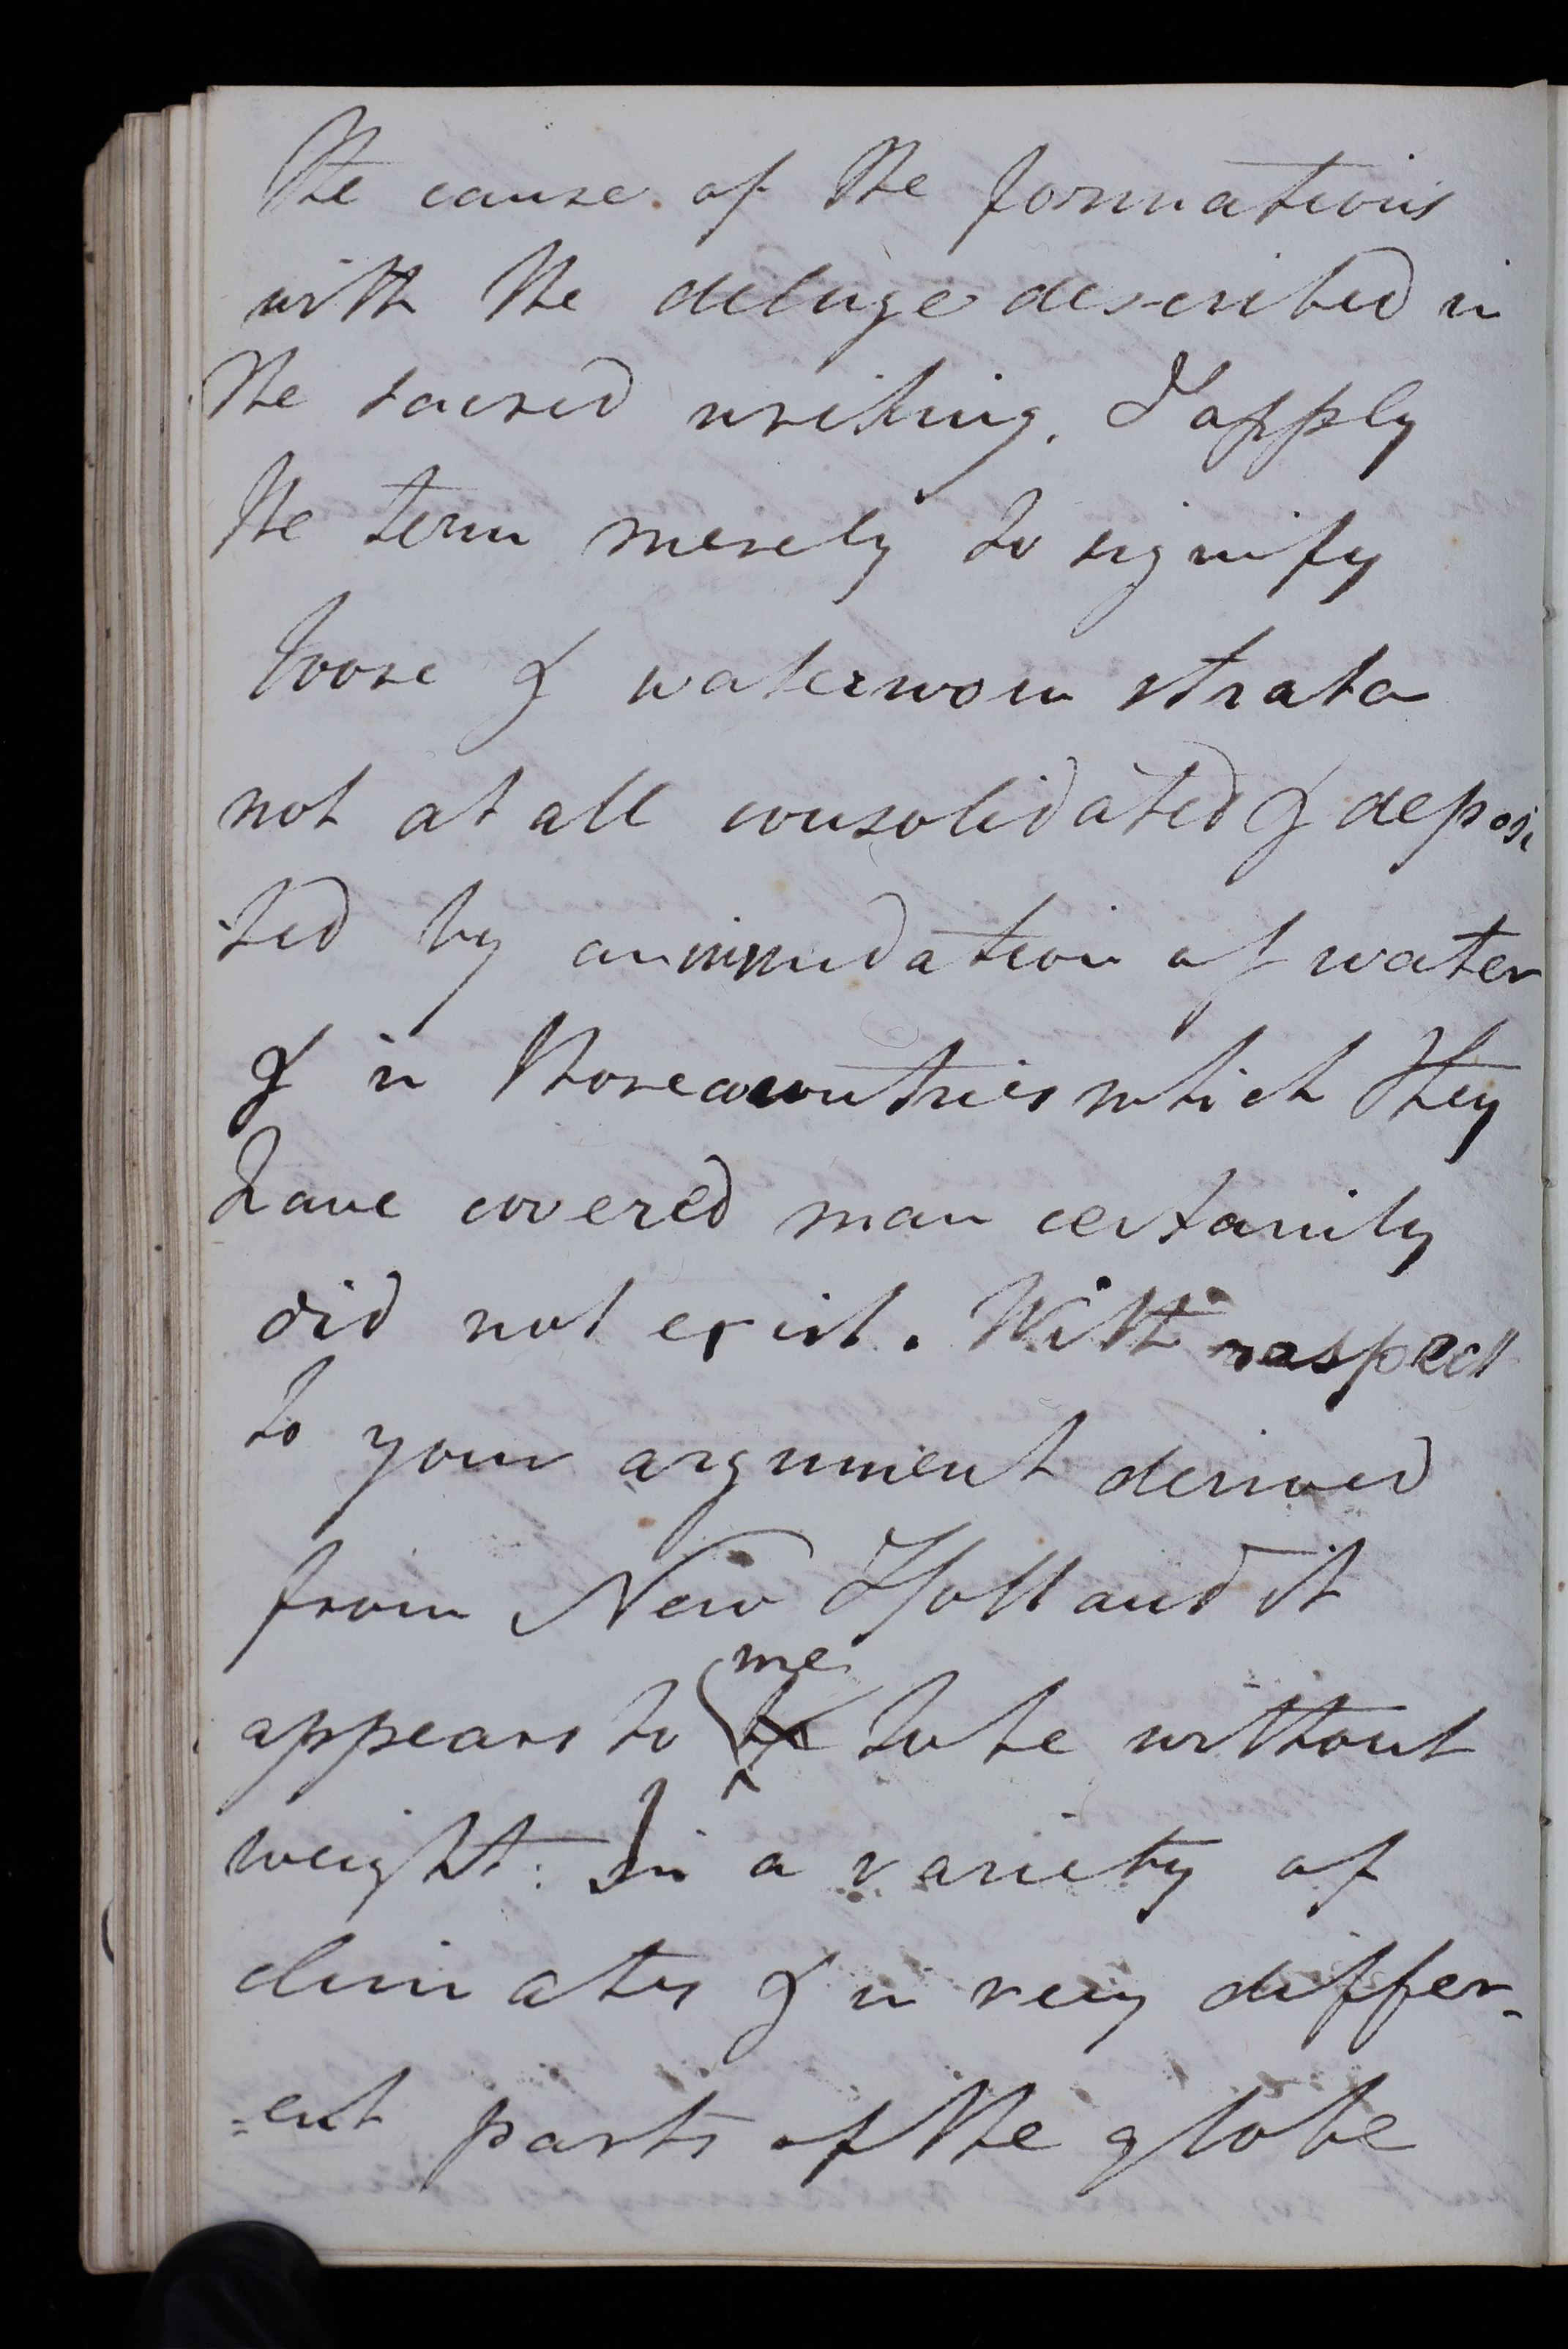 the cause of the formations
with the deluge described in
the sacred writing. I apply
the term merely to signify
loose & waterworn strata
not at all consolidated & deposi
-ted by an inundation of water
& in those countries which they
have covered man certainly
did not exist. With respect
to your argument derived
from New Holland it
appears to me be to be without
weight: In a variety of
climates & in very differ-
=ent parts of the globe